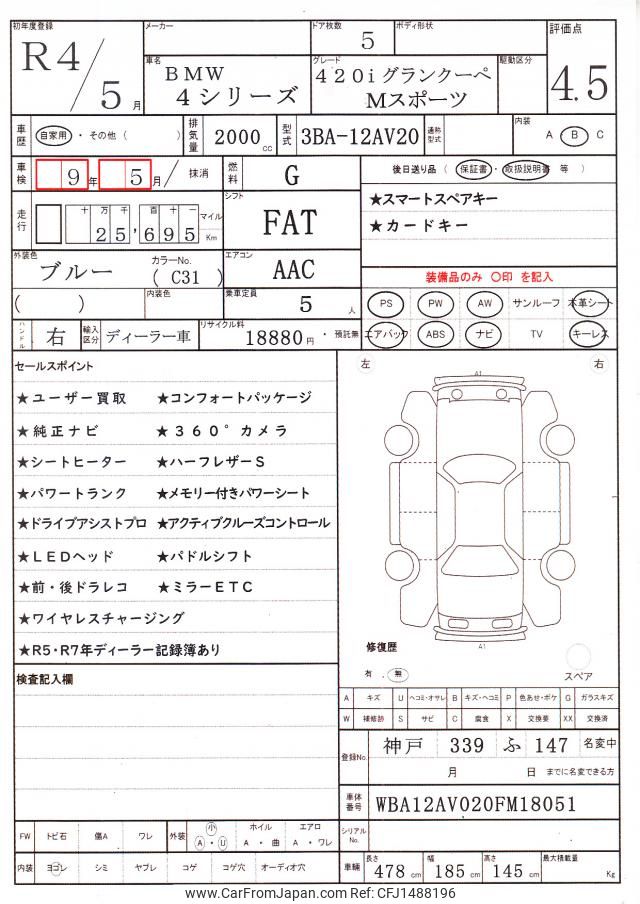 初年度登録 メーカー ドア枚数 5 ボディ形状 評価点
R4/5月
車名 BMW 4シリーズ グレード 420iグランクーペ Mスポーツ 駆動区分 4.5
車歴 自家用・その他( ) 排気量 2000cc 型式 3BA-12AV20 通称型式 内装 A B C
車検 9年 5月/ 抹消 燃料 G 後日送り品 (保証書・取扱説明書 等 )
走行 十万千百十一 25,695 マイル Km シフト FAT
★スマートスペアキー
★カードキー
外装色 ブルー カラーNo. ( C31 ) エアコン AAC 装備品のみ 〇印 を記入
( ) 内装色 乗車定員 5人 PS PW AW サンルーフ 本革シート
ハンドル 右 輸入区分 ディーラー車 リサイクル料 18880円・預託無 エアバック ABS ナビ TV キーレス
セールスポイント
★ユーザー買取 ★コンフォートパッケージ
★純正ナビ ★360°カメラ
★シートヒーター ★ハーフレザーS
★パワートランク ★メモリー付きパワーシート
★ドライブアシストプロ ★アクティブクルーズコントロール
★LEDヘッド ★パドルシフト
★前・後ドラレコ ★ミラーETC
★ワイヤレスチャージング
★R5・R7年ディーラー記録簿あり
左 右
A1
A1
修復歴
有 . 無 スペア
検査記入欄
A キズ U ヘコミ・オサレ B キズ・ヘコミ P 色あせ・ボケ G ガラスキズ
W 補修跡 S サビ C 腐食 X 交換要 XX 交換済
登録No. 神戸 339 ふ 147 名変中
月 日 までに名変できる方
車体番号 WBA12AV020FM18051
シリアルNo.
FW トビ石 傷A ワレ 外装 小 A・U ホイル A・曲 エアロ A・ワレ
内装 ヨゴレ シミ ヤブレ コゲ コゲ穴 オーディオ穴
車輌 長さ 478cm 幅 185cm 高さ 145cm 最大積載量 Kg
www.CarFromJapan.com Ref: CFJ1488196